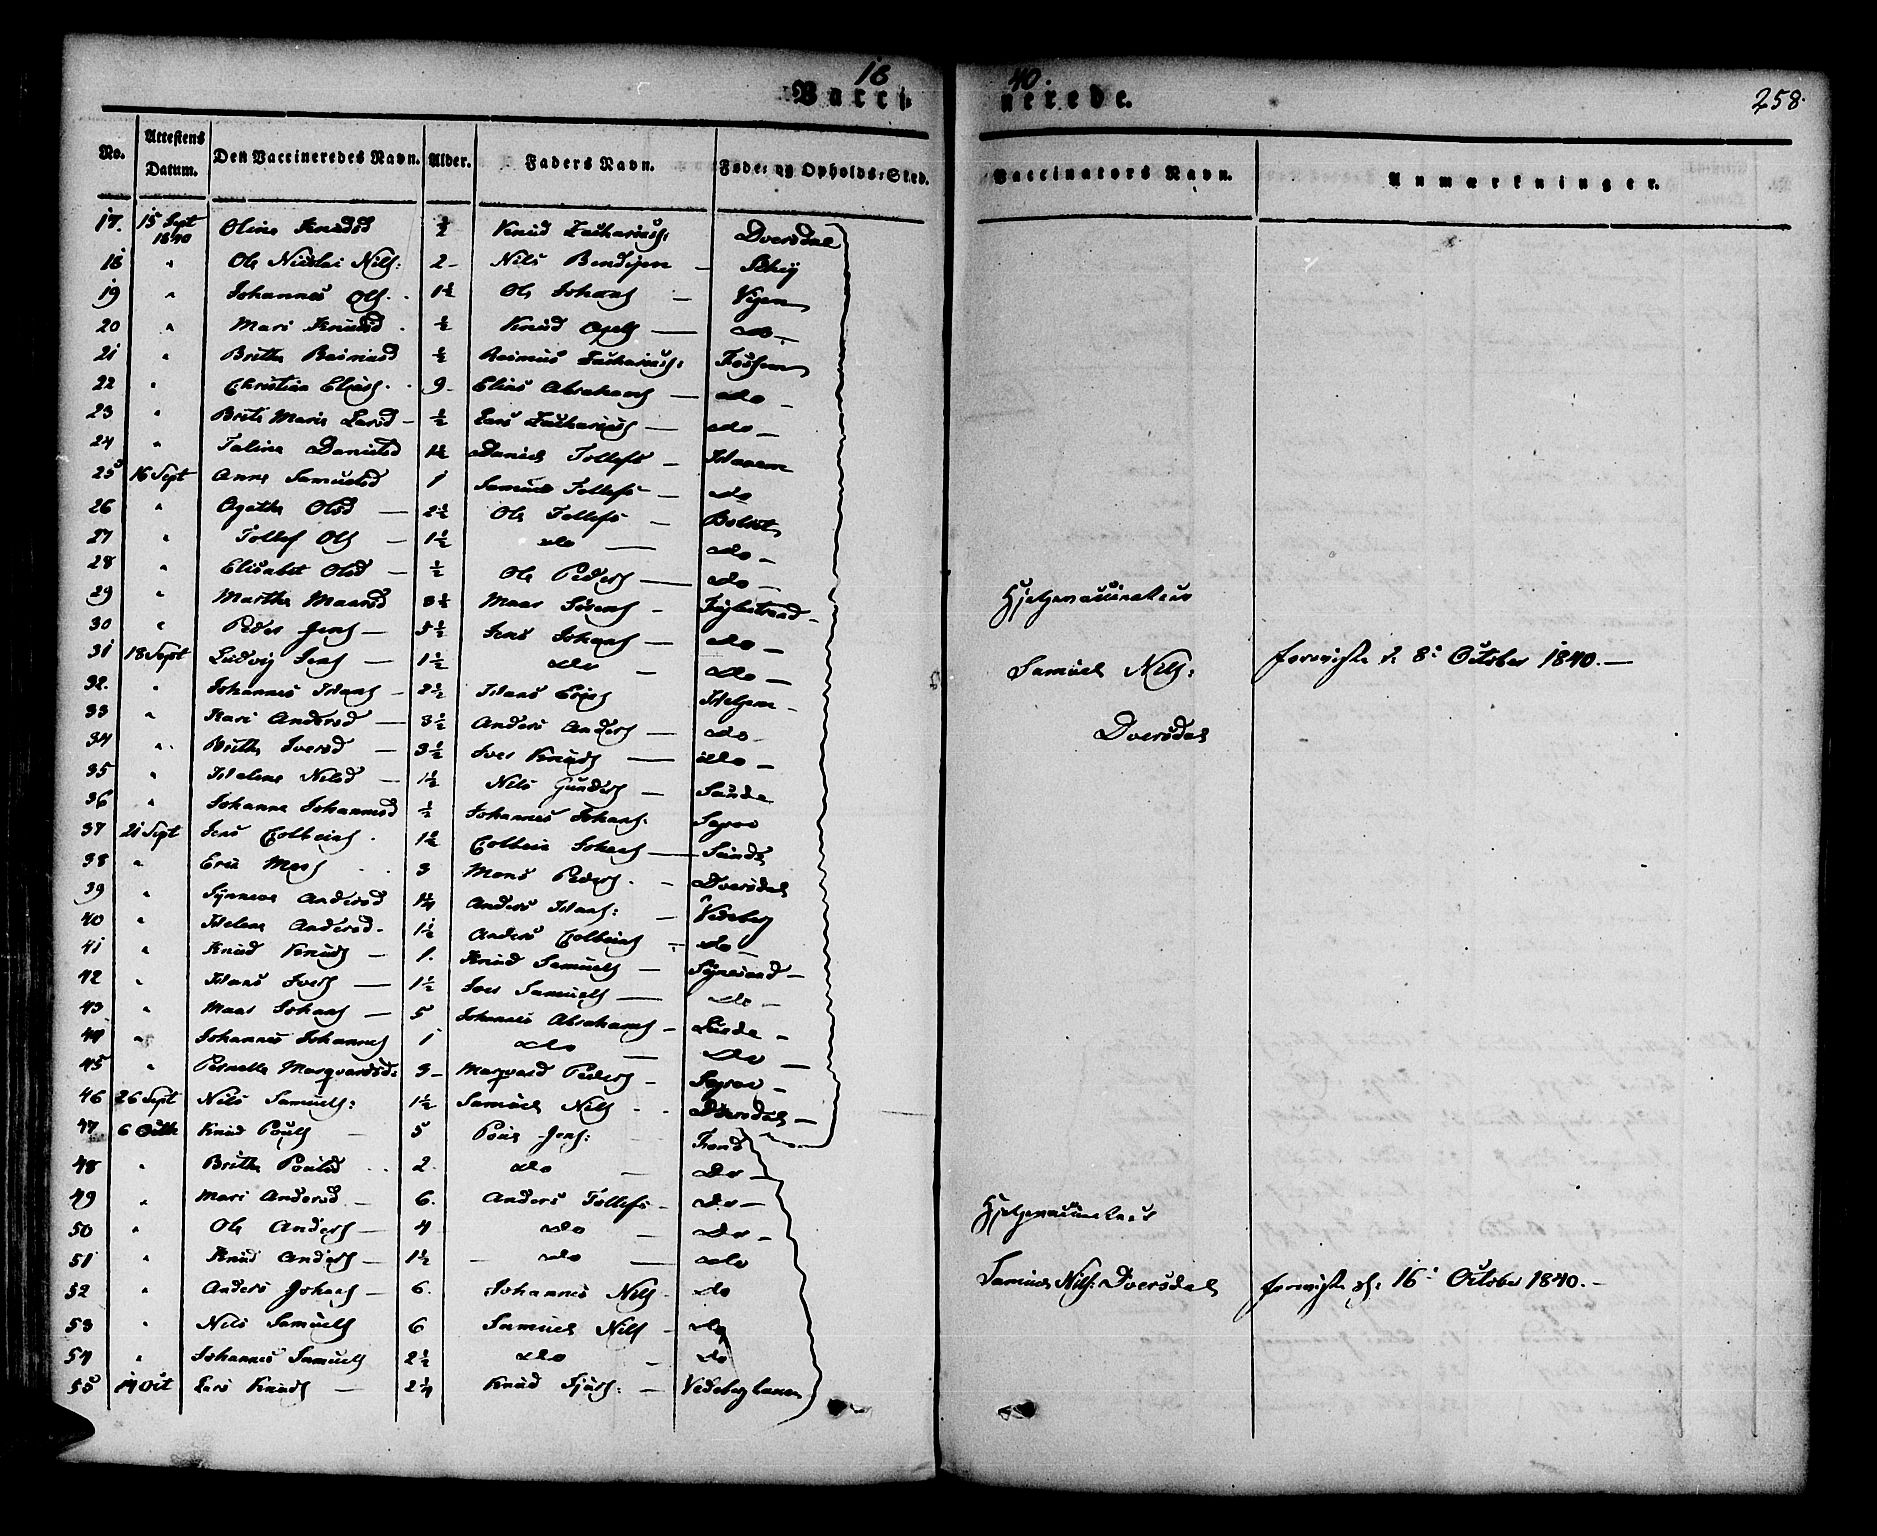 18 40.
Vacci- nerede. 258.
No. Attestens Datum. Den Vaccineredes Navn. Alder. Faders Navn. Føde- og Opholds-Sted. Vaccinators Navn. Anmærkninger.
17. 15 Sept 1840 Oline Knudsd ½ Knud Zachariass: Dversdal
18 " Ole Nicolai Nils: 2 - Nils Bendixen - Skey
19 " Johannes Ols. 1½ Ole Johans - Vigen
20 " Mari Knudsd. ½ Knud Apels - do -
21 " Brithe Rasmusd ½ Rasmus Zachariass: Fossem
22 " Christian Eliass. 9 - Elias Abrahams - do -
23 " Brite Marie Larsd - ½ Lars Zachariass - do -
24 " Taline Danielsd 1½ Daniel Tollefs -
25 16 Sept Anne Samuelsd 1 Samuel Tollefs - do
26 " Agathe Olsd - 2½ Ole Tollefs - Bolset
27 " Tollef Ols - 1½ do - do -
28 " Elisabet Olsd - ½ Ole Peders - do -
29 " Marthe Maarsd 3½ Maar
30 " Peder Jens - 5½ Jens Johans - do -
31 18 Sept Ludvig Jens - 1½ do - do -
32. " Johannes Hans - 2½ Hans Erics Helgem -
33 " Kari Andersd - 3½ Anders Anders - do -
34 " Brithe Iversd - 3½ Iver Knuds - do -
35 " Helene Nilsd - 1½ Nils Gunders - Sande
36 " Johanne Johannesd ½ Johannes Johans. Sagroe
37 21 Sept Jens Colbeins. 1½ Colbein Johans - Sande
38 " Eric Mons . . 3 Mons Peders. - Dversdal
39 " Synneve Andersd 1¼ Anders Hans: - Vedeberg
40 " Helene Andersd. 1½ Anders Colbeins - do -
41 " Knud Knuds - 1. Knud Samuels - Synesand -
42 " Hans Ivers - 1½ Iver Samuels - do -
43 " Maar Johans - 5 Johannes Abrahams - Lunde -
44 " Johannes Johannes 1 do - do -
45 " Pernelle Marqvardsd: 3 - Marqvard Peders - Sagroe -
46 26 Sept Nils Samuels: 1½ Samuel Nils . . Dversdal -
47 6 Octb Knud Pouls - 5 Poul Jens: Trond
48 " Brithe Poulsd . . 2. do - do -
49 " Mari Andersd - 6. Anders Tollefs - do -
50 " Ole Anders - 4 do do -
51 " Knud Anders - 1½ - do - do
52 " Anders Johans - 6. Johannes Nils - do
53 " Nils Samuels 6 Samuel Nils - do
54 " Johannes Samuels 2½ do - do
55 14 Oct Lars Knuds - 2¼ Knud -
Hjelpevaccinateur
Samuel Nils: foreviste d. 8: October 1840. -
Dversdal
Hjelpevaccinateur
Samuel Nils: Dversdal foreviste d: 16: October 1840. -